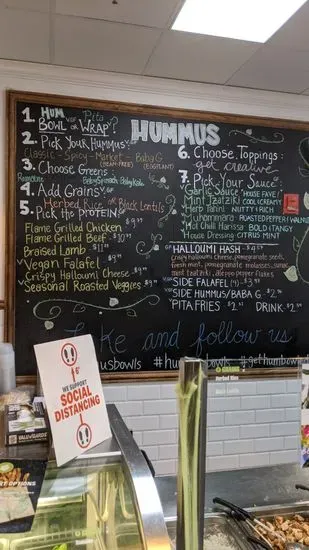 HUMMUS
1. HUM Pita
BOWL or WRAP?
2. Pick Your Hummus:
Classic - Spicy - Market - Baba G
(BEAN-FREE) (EGGPLANT)
3. Choose Greens:
Romaine Baby Spinach, Baby Kale
4. Add Grains
Herbed Rice or Black Lentils
5. Pick the PROTEIN
Flame Grilled Chicken
Flame Grilled Beef
Braised Lamb
Vegan Falafel
Crispy Halloumi Cheese
Seasonal Roasted Veggies
6. Choose Toppings:
get creative
7. Pick Your Sauce
Garlic Sauce HOUSE FAVE!
Mint Tzatziki COOL & CREAMY
Herb Tahini NUTTY & RICH
Muhammara ROASTED PEPPER WALNUT
Hot Chili Harissa BOLD & TANGY
House Dressing CITRUS MINT
HALLOUMI HASH
crispy halloumi cheese, pomegranate seeds,
fresh mint, pomegranate molasses, sumac
mint tzatziki, aleppo pepper flakes
SIDE FALAFEL
SIDE HUMMUS/BABA G
PITA FRIES DRINK
like and follow us
WE SUPPORT
SOCIAL
DISTANCING
6'
GRAINS
Herbed Rice
Black Lentils